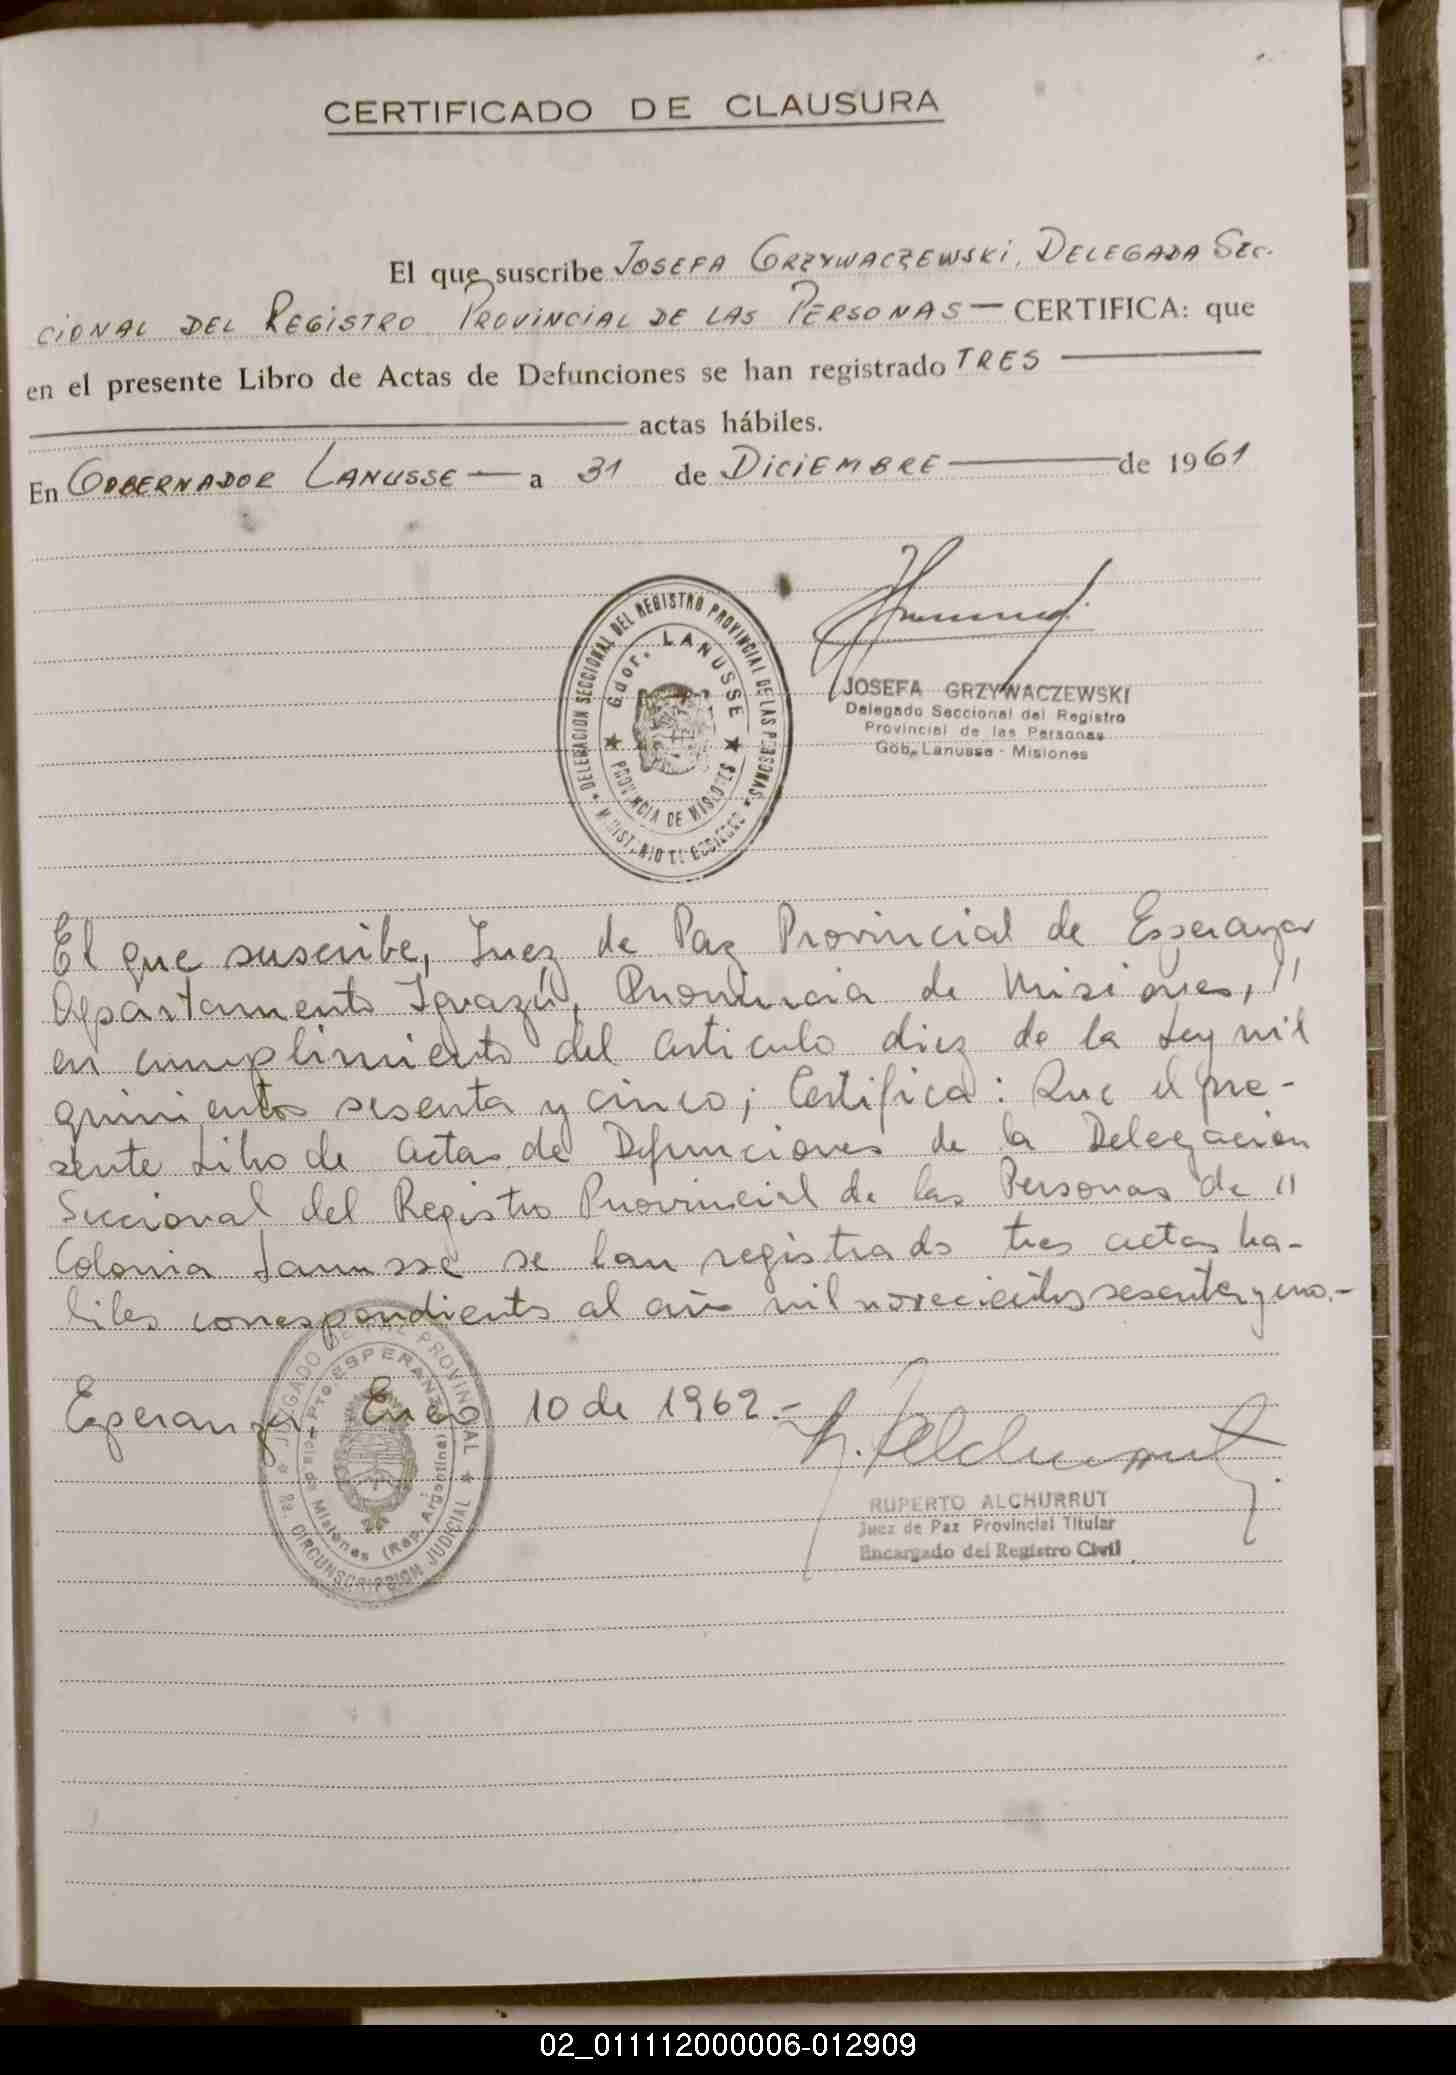 CERTIFICADO DE CLAUSURA
El que suscribe JOSEFA GRZYWACZEWSKI, DELEGADA SEC-
CIONAL DEL REGISTRO PROVINCIAL DE LAS PERSONAS — CERTIFICA: que
en el presente Libro de Actas de Defunciones se han registrado TRES —
— actas hábiles.
En GOBERNADOR LANUSSE — a 31 de DICIEMBRE — de 1961
DELEGACION SECCIONAL DEL REGISTRO PROVINCIAL DE LAS PERSONAS
Gdor. LANUSSE
PROVINCIA DE MISIONES
MINISTERIO DE GOBIERNO
JOSEFA GRZYWACZEWSKI
Delegado Seccional del Registro
Provincial de las Personas
Gob. Lanusse - Misiones
El que suscribe, Juez de Paz Provincial de Esperanza
Departamento Iguazú, Provincia de Misiones, "
en cumplimiento del articulo diez de la Ley mil
quinientos sesenta y cinco; Certifica: Que el pre-
sente Libro de actas de Defunciones de la Delegación
Seccional del Registro Provincial de las Personas de "
Colonia Lanusse se han registrado tres actas ha-
biles correspondiente al año mil novecientos sesenta y uno.-
Esperanza, Enero 10 de 1962.-
JUZGADO DE PAZ PROVINCIAL
PTO ESPERANZA
cia de Misiones (Rep. Argentina)
CIRCUNSCRIPCION JUDICIAL
R. Alchurrut
RUPERTO ALCHURRUT
Juez de Paz Provincial Titular
Encargado del Registro Civil
02_011112000006-012909